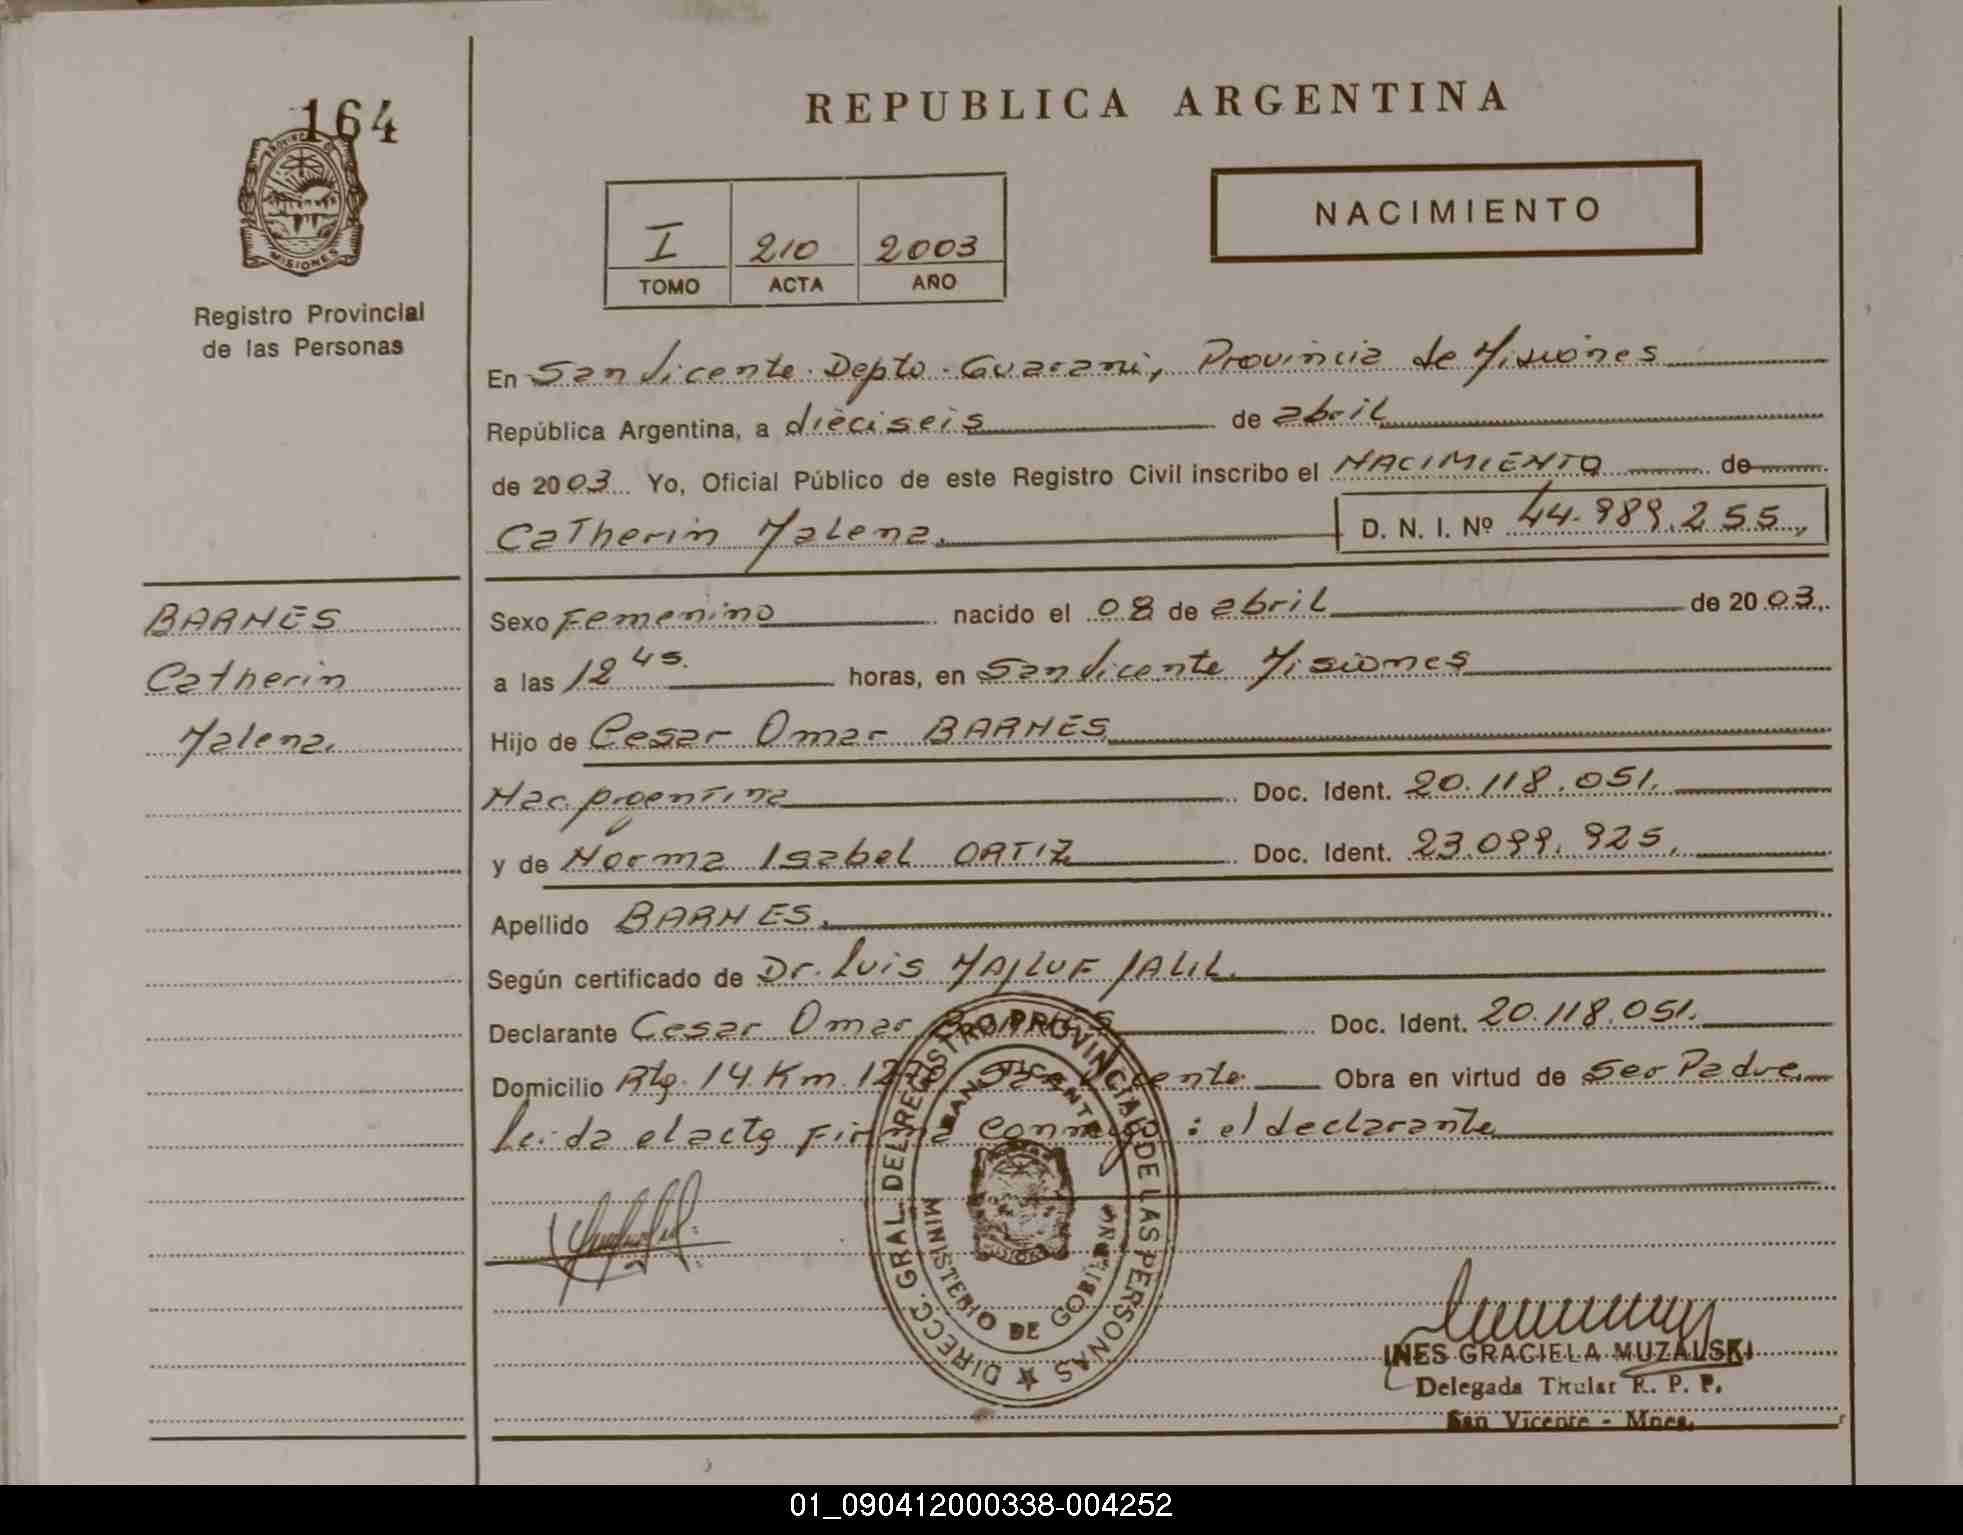 164
PROVINCIA DE
MISIONES
Registro Provincial
de las Personas
REPUBLICA ARGENTINA
I 210 2003
TOMO ACTA AÑO
NACIMIENTO
En San Vicente. Depto. Guaraní, Provincia de Misiones
República Argentina, a dieciseis de abril
de 2003 Yo, Oficial Público de este Registro Civil inscribo el NACIMIENTO de
Catherin Malena. D. N. I. Nº 44.989.255,
BARNES
Catherin
Malena.
Sexo Femenino nacido el 08 de abril de 2003.
a las 12 45. horas, en San Vicente Misiones
Hijo de Cesar Omar BARNES
Nac. Argentina Doc. Ident. 20.118.051.
y de Norma Isabel ORTIZ Doc. Ident. 23.099.925.
Apellido BARNES.
Según certificado de Dr. Luis MAJLUF JALIL.
Declarante Cesar Omar Doc. Ident. 20.118.051.
Domicilio Rta. 14 Km. San Vicente Obra en virtud de Ser Padre.
Leida el acta firma conmigo: el declarante
DIRECC. GRAL. DEL REGISTRO PROVINCIAL DE LAS PERSONAS
SAN VICENTE
MINISTERIO DE GOBIERNO
INES GRACIELA MUZALSKI
Delegada Titular R. P. P.
San Vicente - Mnes.
01_090412000338-004252